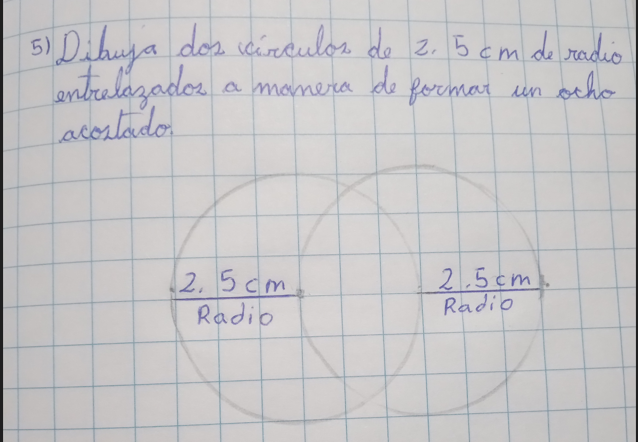 5) Dibuja dos círculos de 2.5 cm de radio
entrelazados a manera de formar un ocho
acostado.
2.5 cm
Radio
2.5 cm
Radio